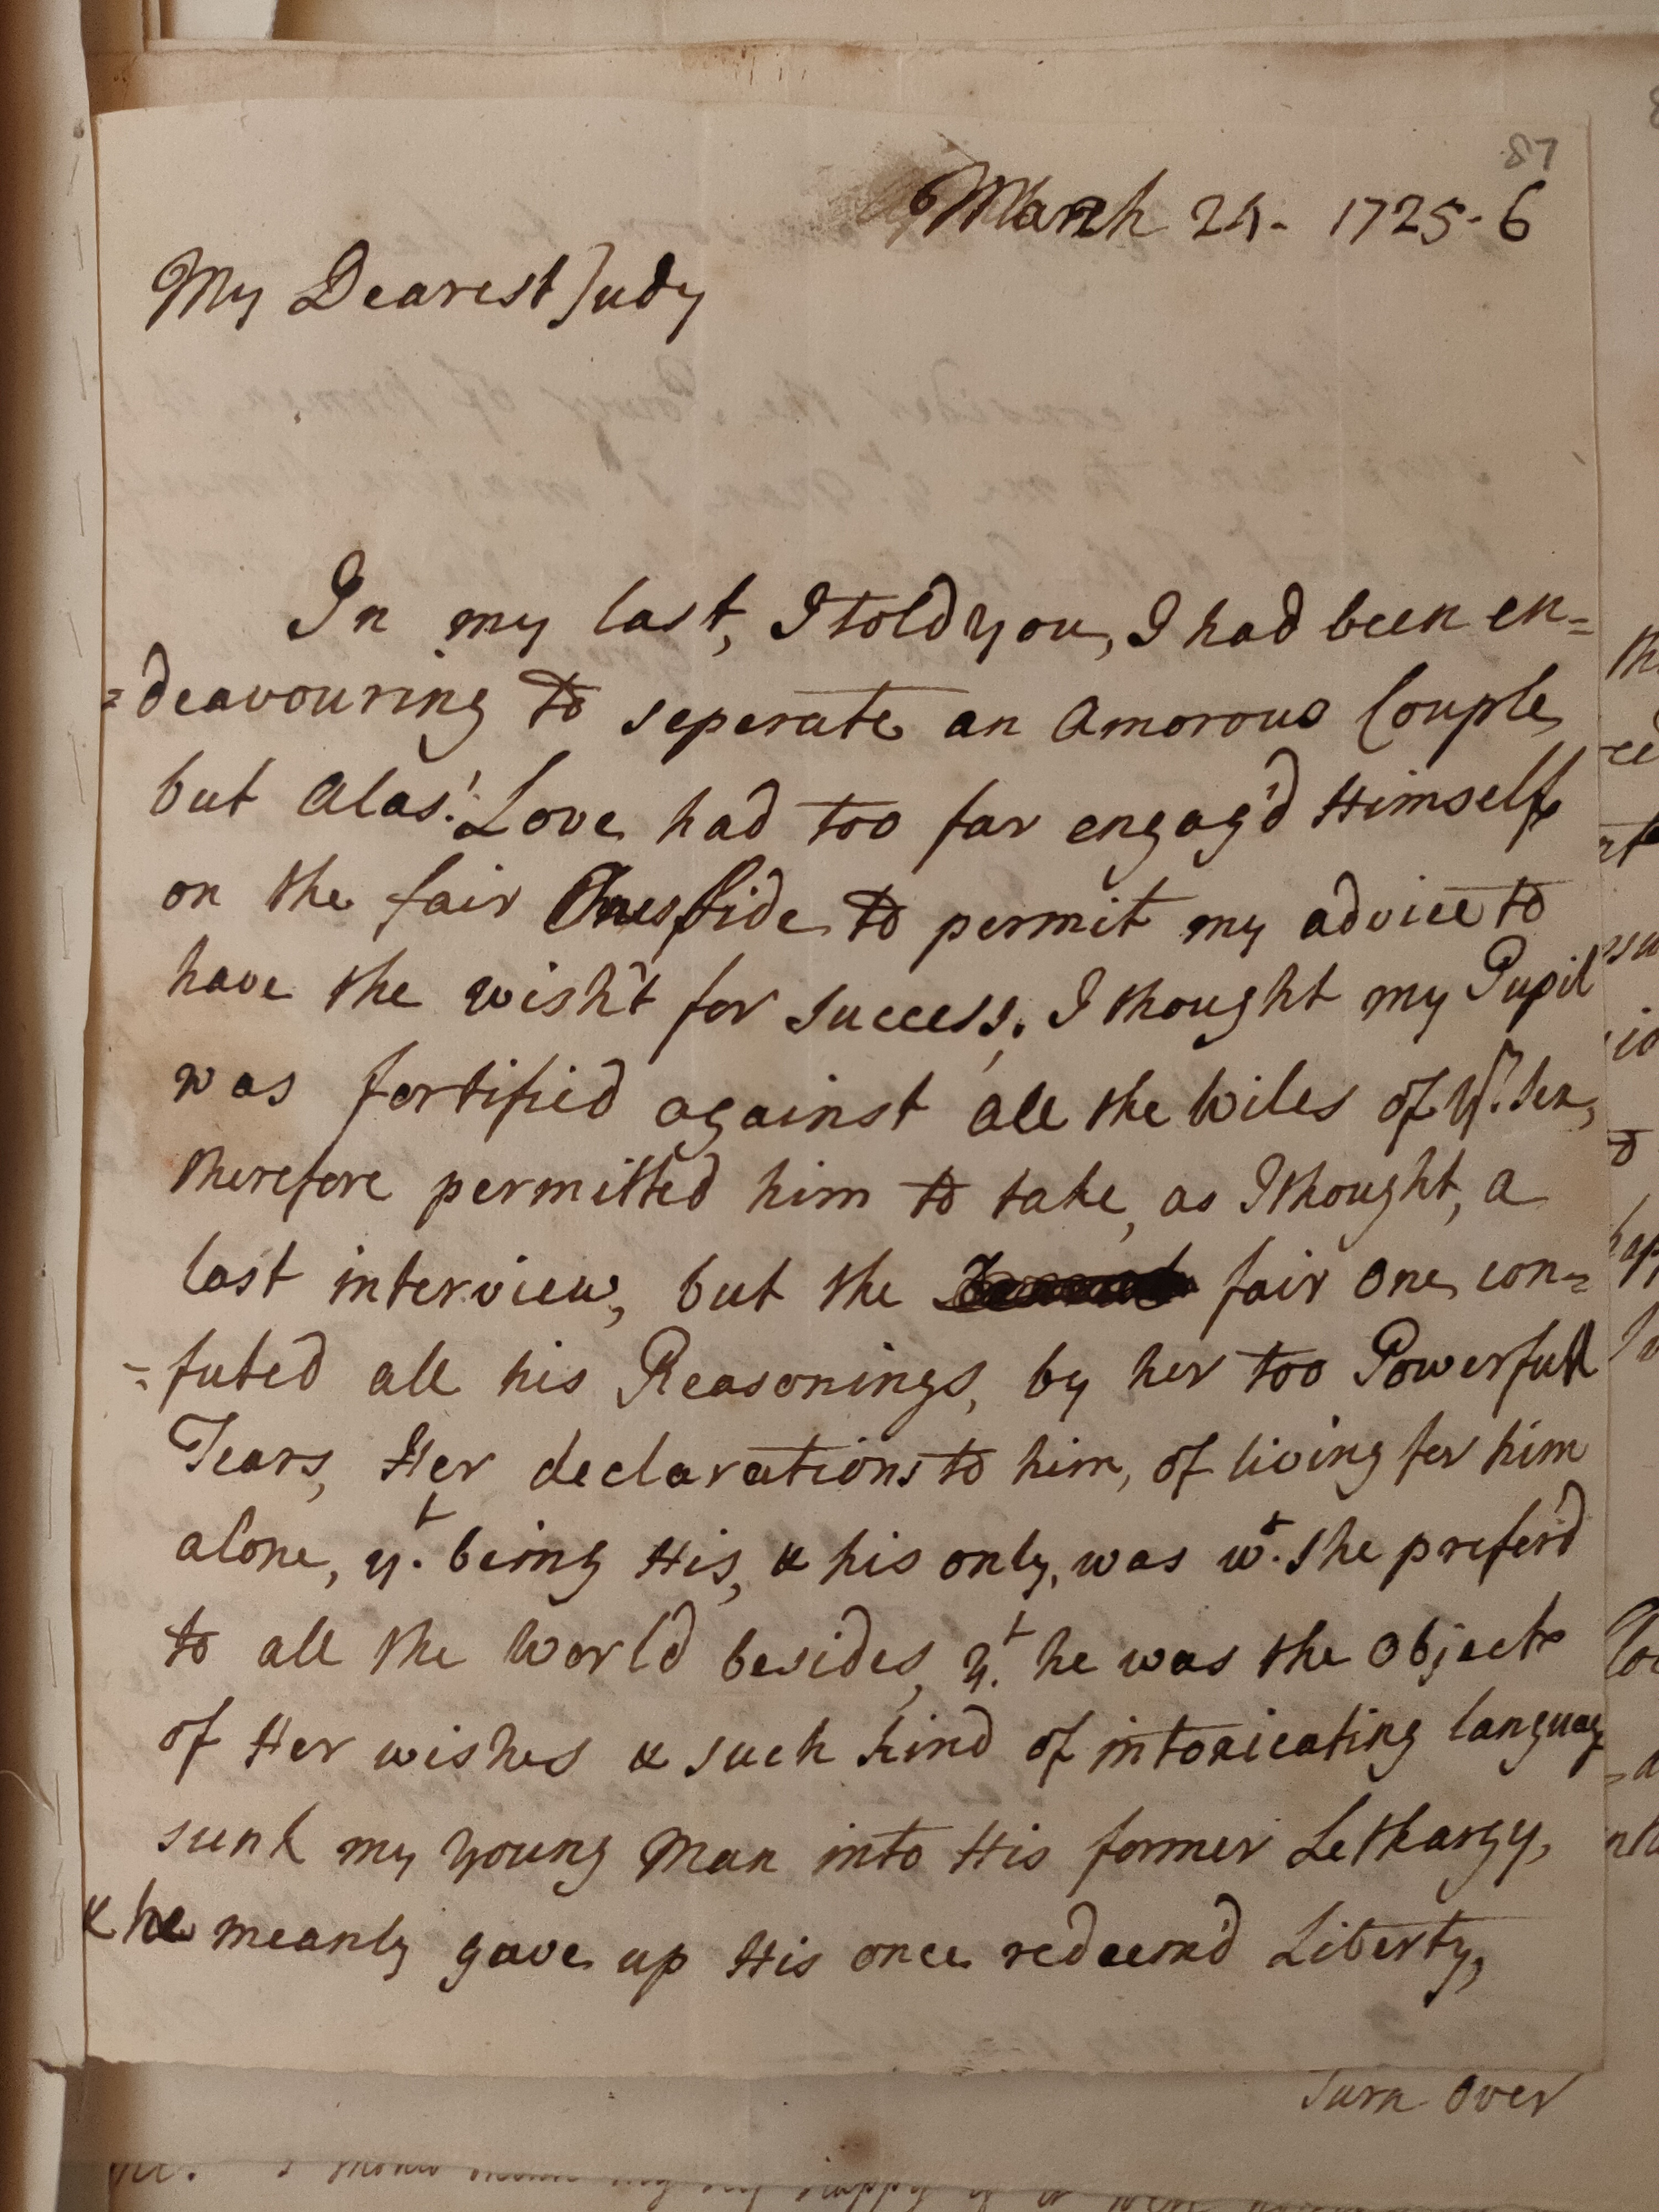 87
March 24. 1725-6
My Dearest Judy
In my last, I told you, I had been en=
=deavouring to seperate an Amorous Couple,
but Alas! Love had too far engag'd Himselfe
on the fair Ones side to permit my advice to
have the wish't for success. I thought my Pupil
was fortified against all the Wiles of yt. sex,
therefore permitted him to take, as I thought, a
last interview, but the fair One con=
=futed all his Reasonings, by her too Powerfull
Tears, Her declarations to him, of living for him
alone, yt. being His, & his only, was wt. she prefer'd
to all the World besides, yt. he was the Object
of Her wishes & such kind of intoxicating language
sunk my young Man into His former Lethargy,
& he meanly gave up His once redeem'd Liberty,
Turn Over